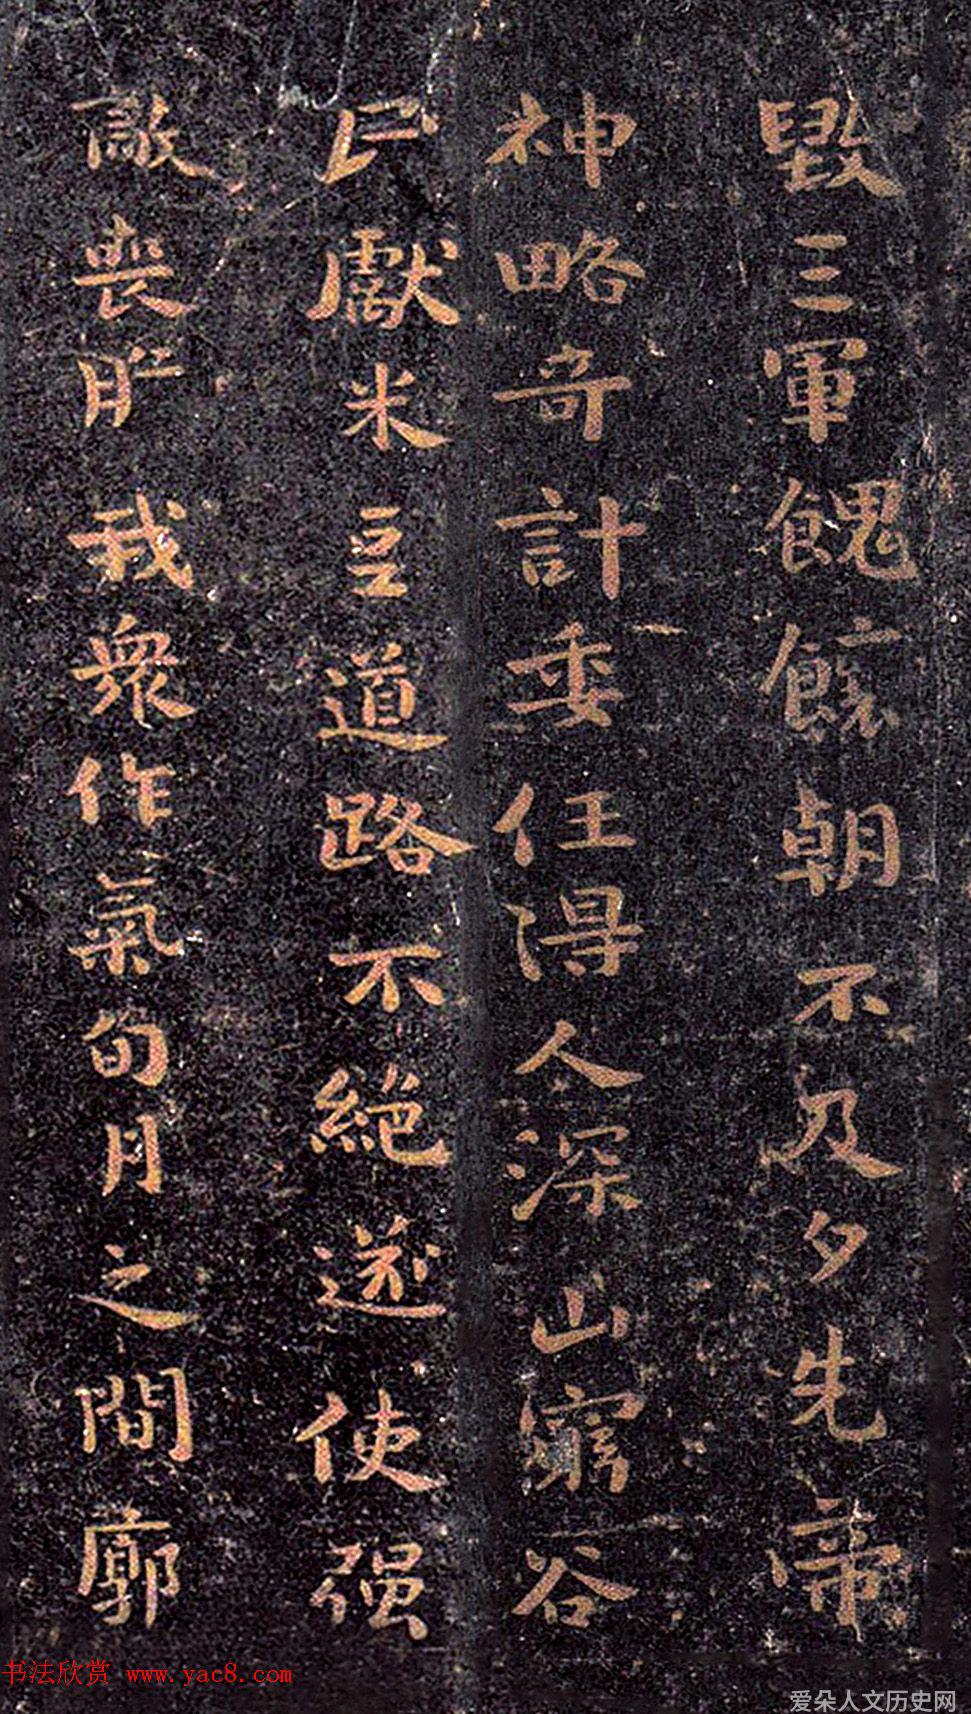 毀三軍餽饟朝不及夕先帝
神略奇計委任得人深山窮谷
民獻米豆道路不絕遂使强
敵喪膽我眾作氣旬月之間廓
书法欣赏 www.yac8.com
爱朵人文历史网